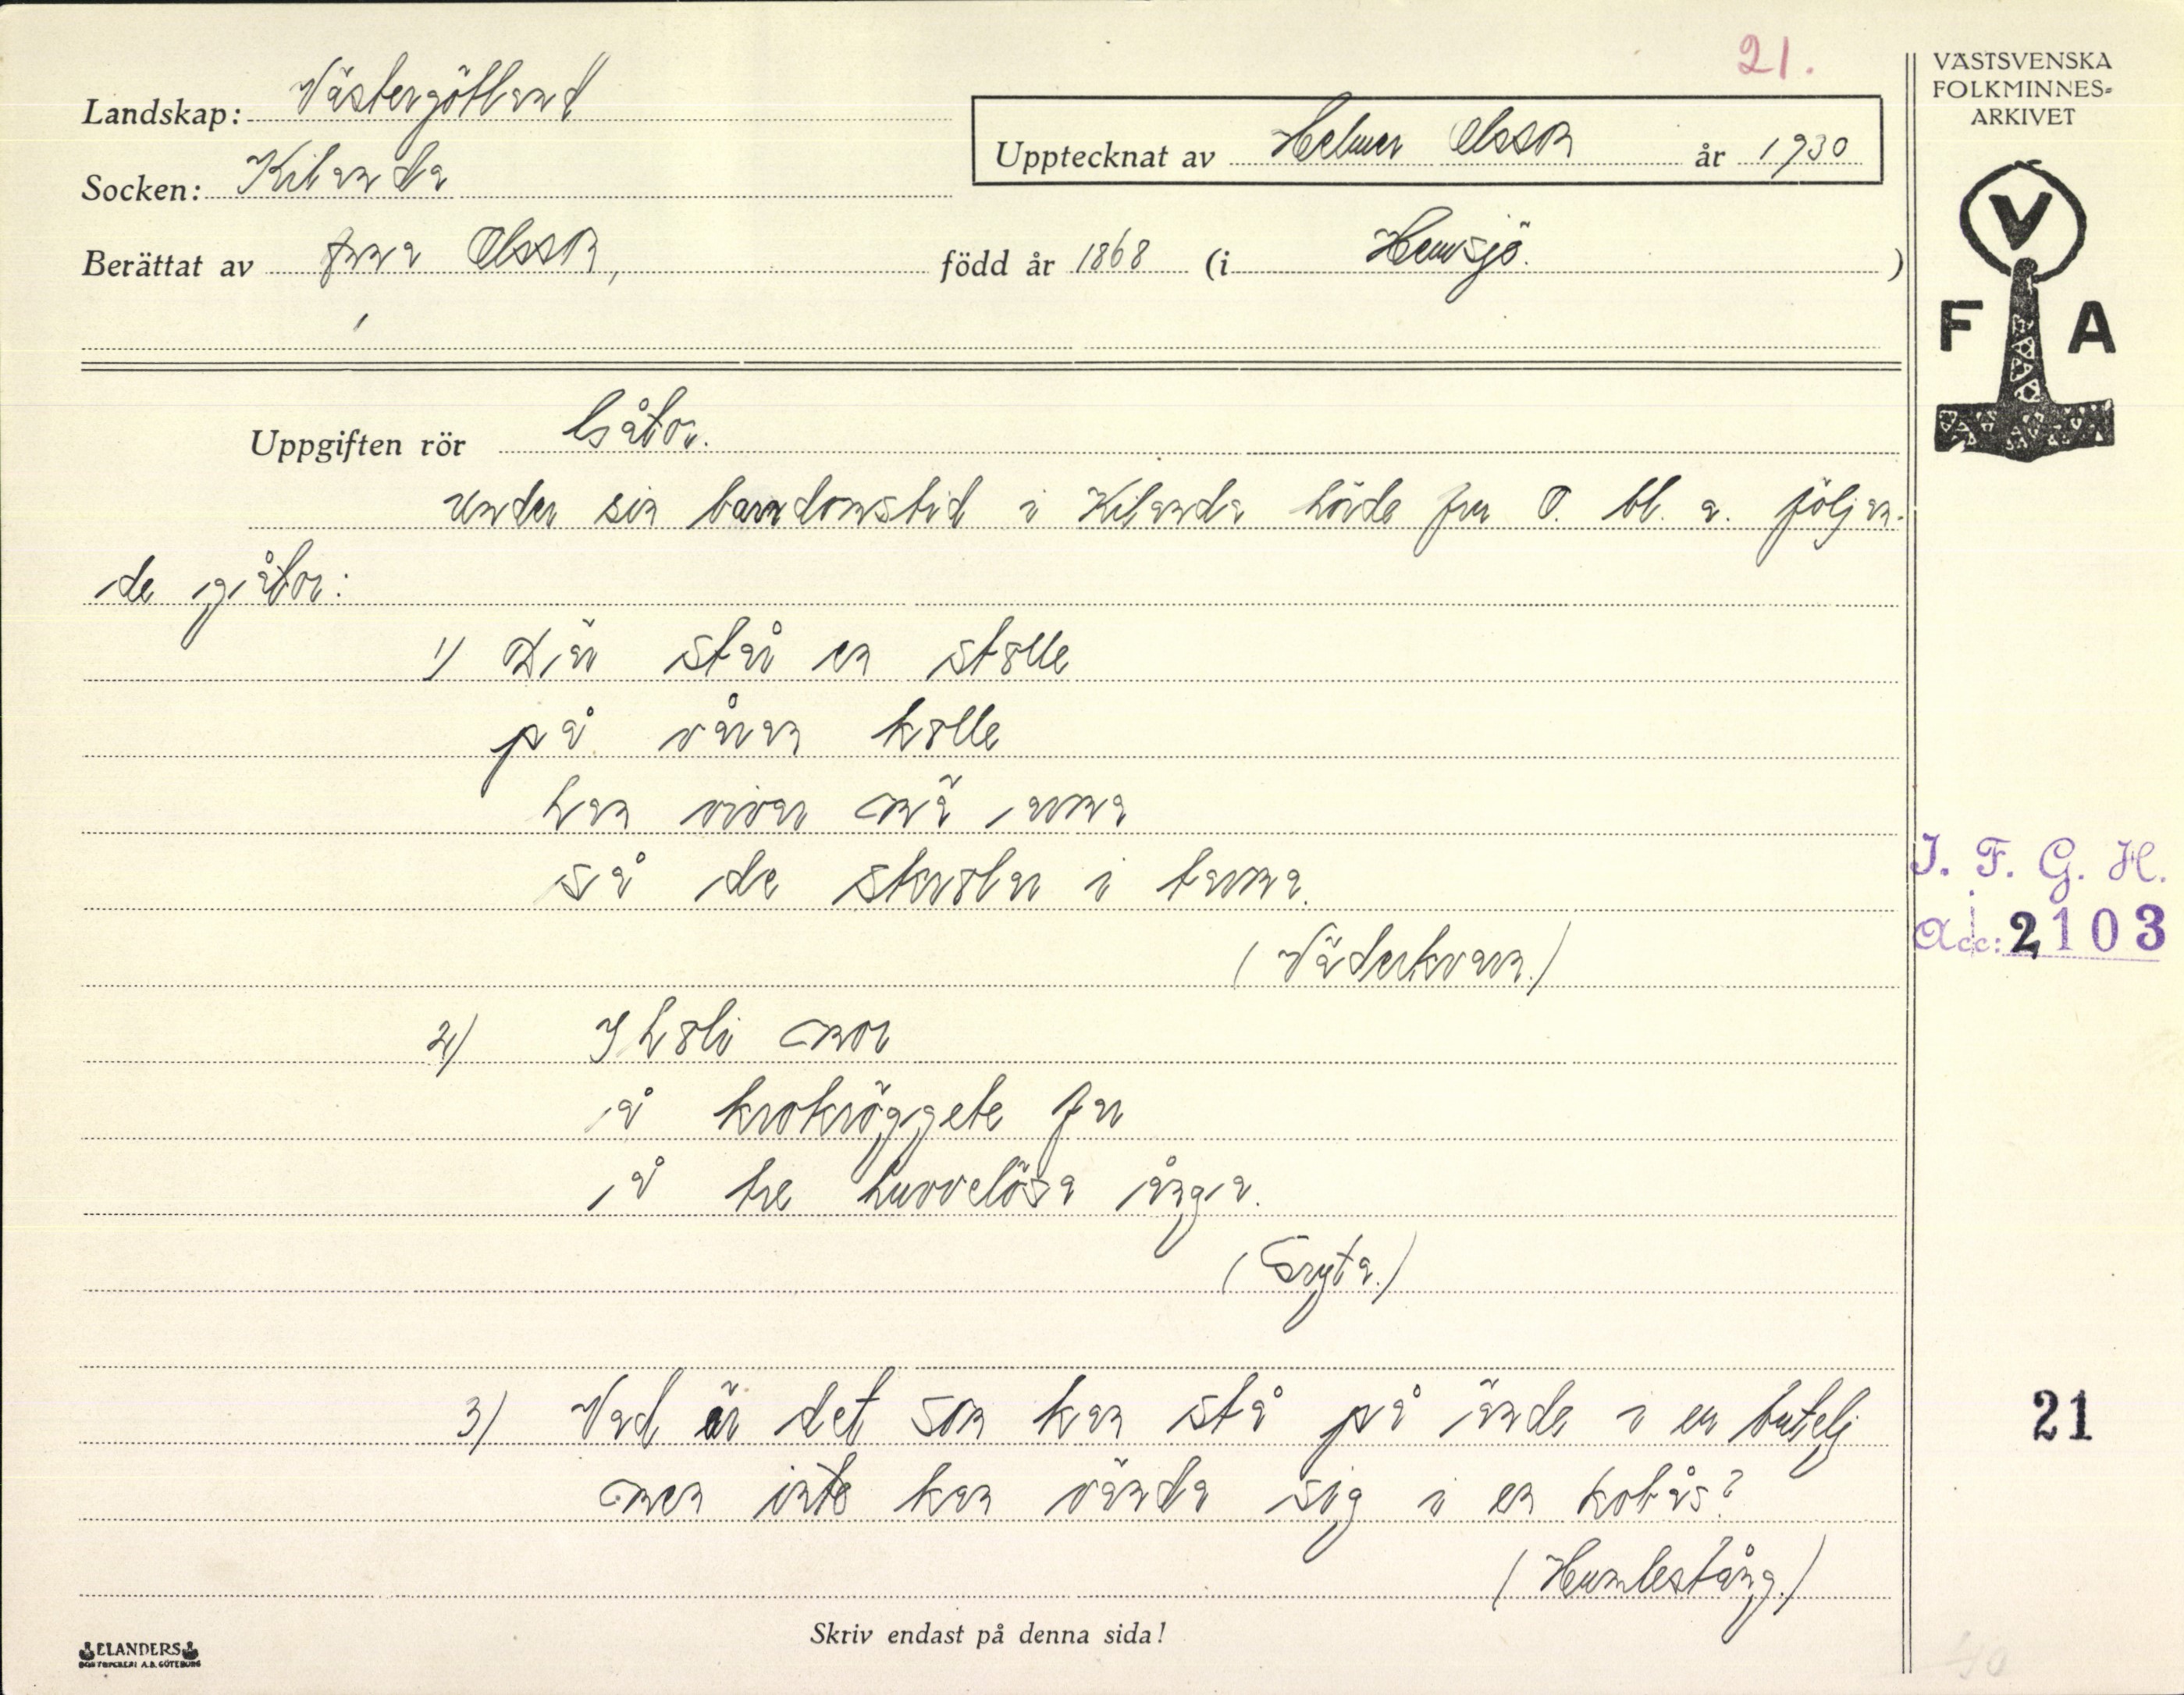 21.
VÄSTSVENSKA
FOLKMINNES-
ARKIVET
Landskap: Västergötland
Upptecknat av Helmer Olsson år 1930
Socken: Kilanda
Berättat av fru Olsson, född år 1868 (i Hemsjö.)
V
F A
Uppgiften rör Gåtor.
Under sin barndomstid i Kilanda hörde fru O. bl. a. följan-
de gåtor:
1) Där står en stolle
på våran kolle
han vivar mä arma
så de skrolar i tarma.
(Väderkvarn.)
I. F. G. H.
Acc: 2103
2) I holi mor
å krokröggete far
å tre huvvelösa ånga.
(Gryta.)
3) Vad är det som kan stå på ände i en butelj
21
men inte kan vända sig i en kobås?
(Humlestång.)
Skriv endast på denna sida!
ELANDERS
BOKTRYCKERI A.B. GÖTEBORG
40